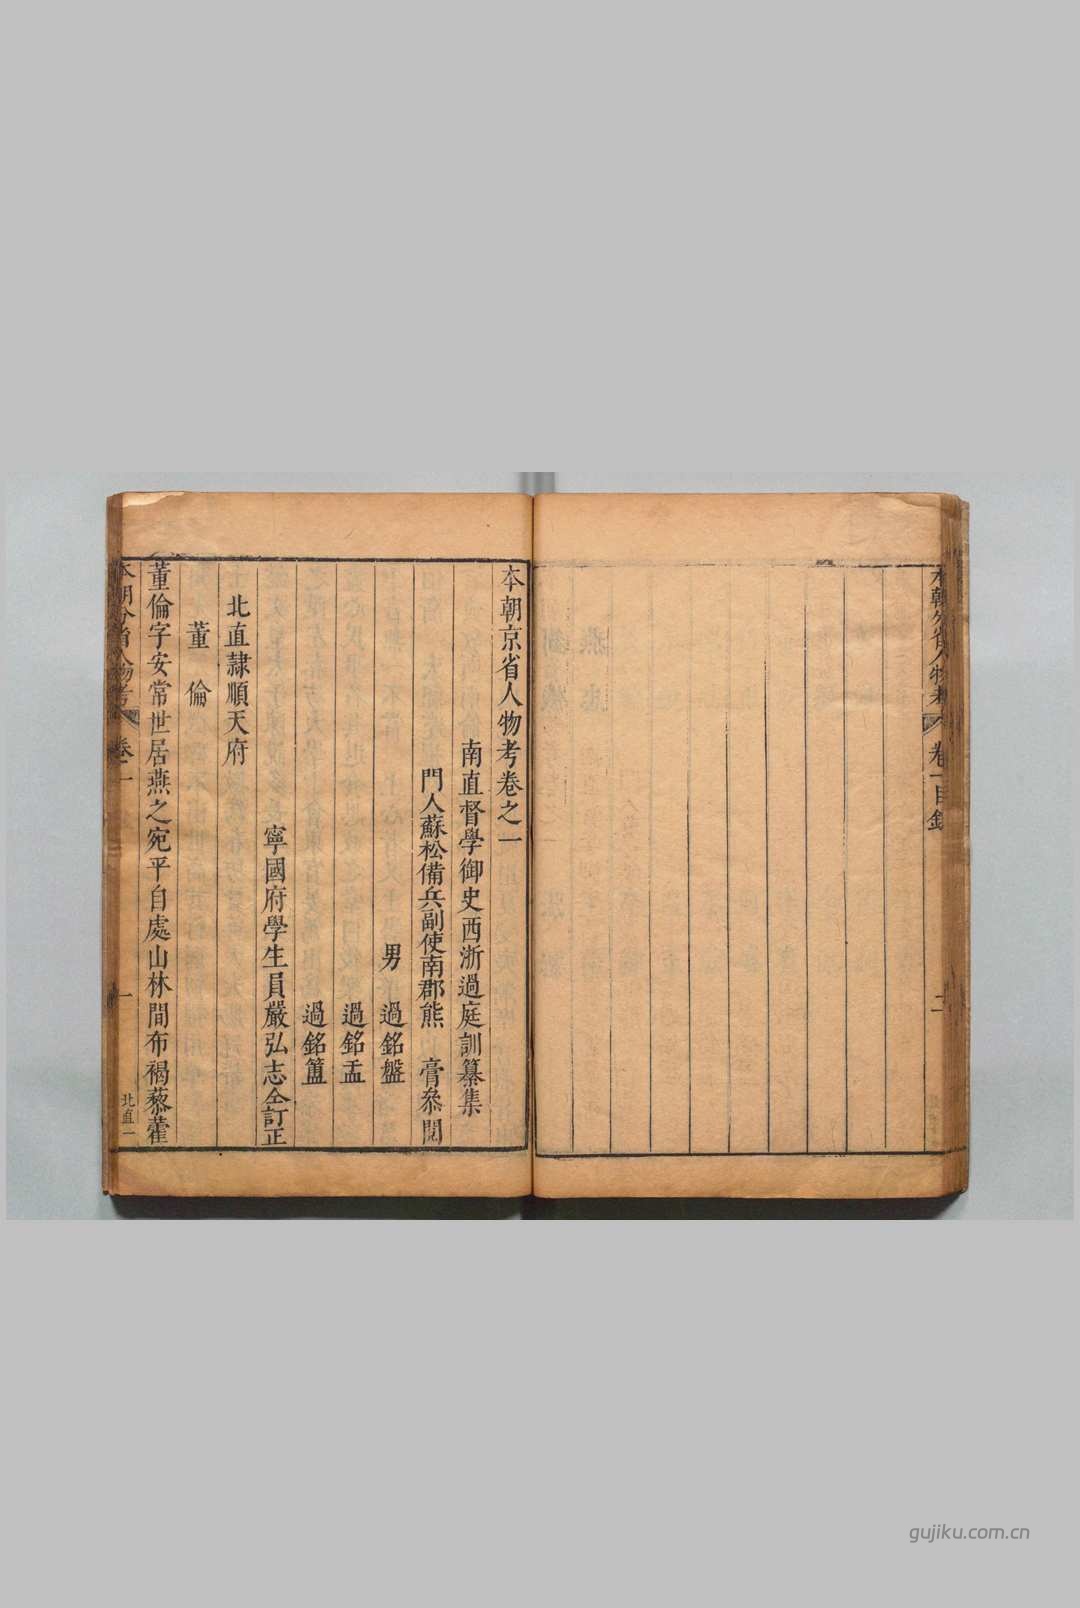 本朝分省人物考
卷一目錄
二
本朝京省人物考卷之一
南直督學御史西浙過庭訓纂集
門人蘇松備兵副使南郡熊 膏叅閱
男 過銘盤
過銘盂
過銘簠
寧國府學生員嚴弘志仝訂正
北直隸順天府
董 倫
董倫字安常世居燕之宛平自處山林間布褐藜藿
本朝分省人物考
卷一
一
北直一
gujiku.com.cn